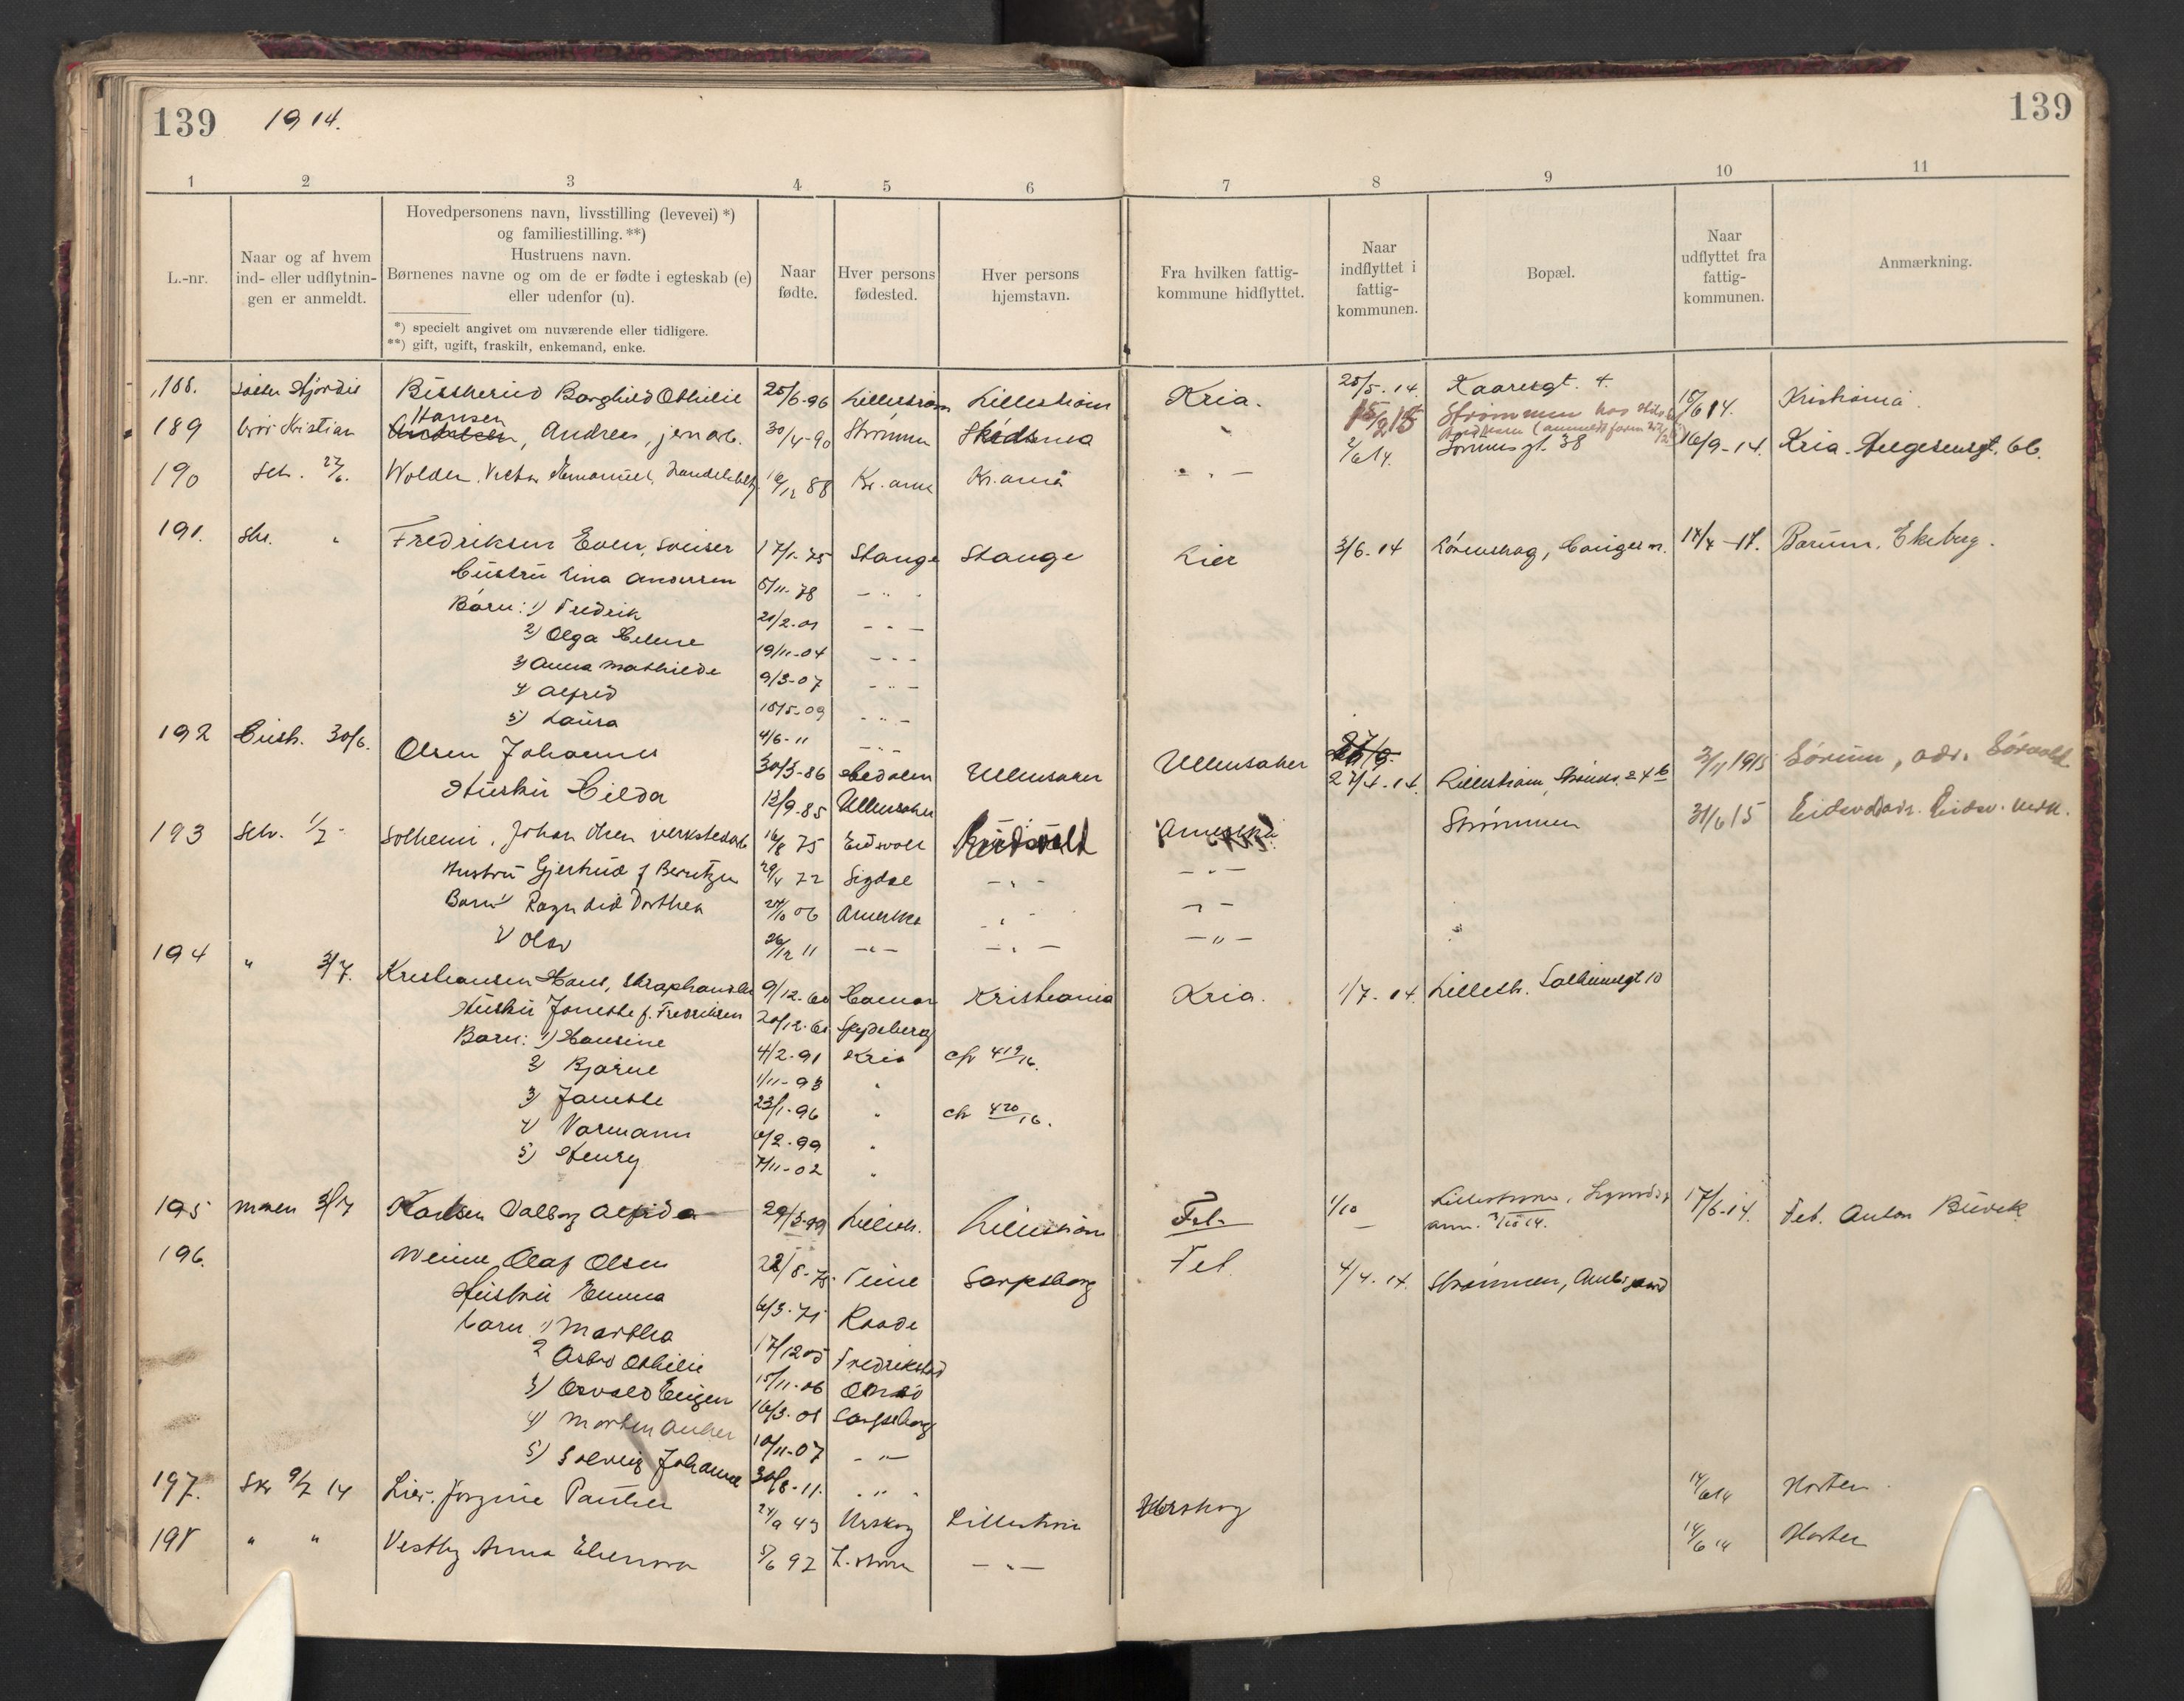 139 1914. 139
1 2 3 4 5 6 7 8 9 10 11
L.-nr.
Naar og af hvem
ind- eller udflytnin-
gen er anmeldt.
Hovedpersonens navn, livsstilling (levevei) *)
og familiestilling. **)
Hustruens navn.
Børnenes navne og om de er fødte i egteskab (e)
eller udenfor (u).
*) specielt angivet om nuværende eller tidligere.
**) gift, ugift, fraskilt, enkemand, enke.
Naar
fødte.
Hver persons
fødested.
Hver persons
hjemstavn.
Fra hvilken fattig-
kommune hidflyttet.
Naar
indflyttet i
fattig-
kommunen.
Bopæl.
Naar
udflyttet fra
fattig-
kommunen.
Anmærkning.
188. Hjørdis Borghild Othilie 25/6-96 Lillestrøm Lillestrøm Kria. 25/5-14 Kaaresgt. 4. 15/6 14. Kristiania
Hansen 15/2 15 Strømmen hos
189 Kristian Andersen, Andreas, jernarb. 30/4-90 Strømmen Skedsmo " 2/6 14. 38 16/9-14. Kria. Helgesensgt. 66.
190 Selv. 27/6. Wolden, Victor Emanuel, 16/12 88 Kr.ania Kr.ania - " -
191. Selv. " Fredriksen Even, Sveiser 17/1-75 Stange Stange Lier 3/6-14 Lørenskog, 14/4-17. Bærum, Ekeberg.
Hustru Lina Andersen 5/11-78 - " -
Børn: 1) Fredrik 21/2-01 - " -
2) Olga Helene 19/11-04 - " -
3) Anna Mathilde 9/3-07 - " -
4) Alfred 15/5-09 - " -
5) Laura 4/6-11 - " -
192 30/6. Olsen Johannes 30/3-86 Hedalen Ullensaker Ullensaker 27/4-14. Lillestrøm, 24 b 3/11 1915 Sørum, adr. Sørvald
Hustru Hilda 12/9-85 Ullensaker
193 Selv. 1/7- Solheim, Johan Olsen verkstedarb 16/8 75 Eidsvoll Eidsvold Amerika Strømmen 31/6 15 Eidsvold adr. Eidsv. verk.
Hustru Gjertrud f Berntzen 29/4 72 Sigdal - " - - " -
Barn 1) Ragnhild Dorthea 24/10 06 Amerika " - " -
2) Olav 26/12 11 - " - - " - - " -
194 " 3/7. Kristiansen Hans, Skraphandler 9/12-60 Hamar Kristiania Kria. 1/7-14. Lillestr. Solheimsgt 10
Hustru Janette f. Fredriksen 20/12-60 Spydeberg
Barn: 1) Hansine 4/2-91 Kria cfr 419/16.
2) Bjarne 1/11-93 "
3) Janette 23/1-96 " cfr 420/16.
4) Varmann 6/2-99 "
5) Henry 7/11-02 "
195 Moren 3/7 Karlsen Valborg Alfida 29/3-99 Lillestr. Lillestrøm Fet. 1/10 Lillestrøm, 17/6-14. Fet. Anton Burek
anm. 3/10 14.
196. Olaf Olsen 22/8-75 Tune Sarpsborg Fet. 4/4-14. Strømmen,
Hustru Emma 6/3-71 Raade
barn 1) Martha 17/12 05 Fredrikstad
2 Asta Othilie 15/11-06 Onsø
3) Osvald Eugen 16/3-01 Sarpsborg
4) 10/11-07 - " -
5) Solveig Johanne 30/8-11. - " -
197. Skr 9/7 14 Lier. Jorgine Pauline 24/9 43 Urskog Lillestrøm Urskog 14/6 14 Horten
198 " " Vestby Anna Elenora 5/6 92 L.strøm - " - 14/6 14 Horten